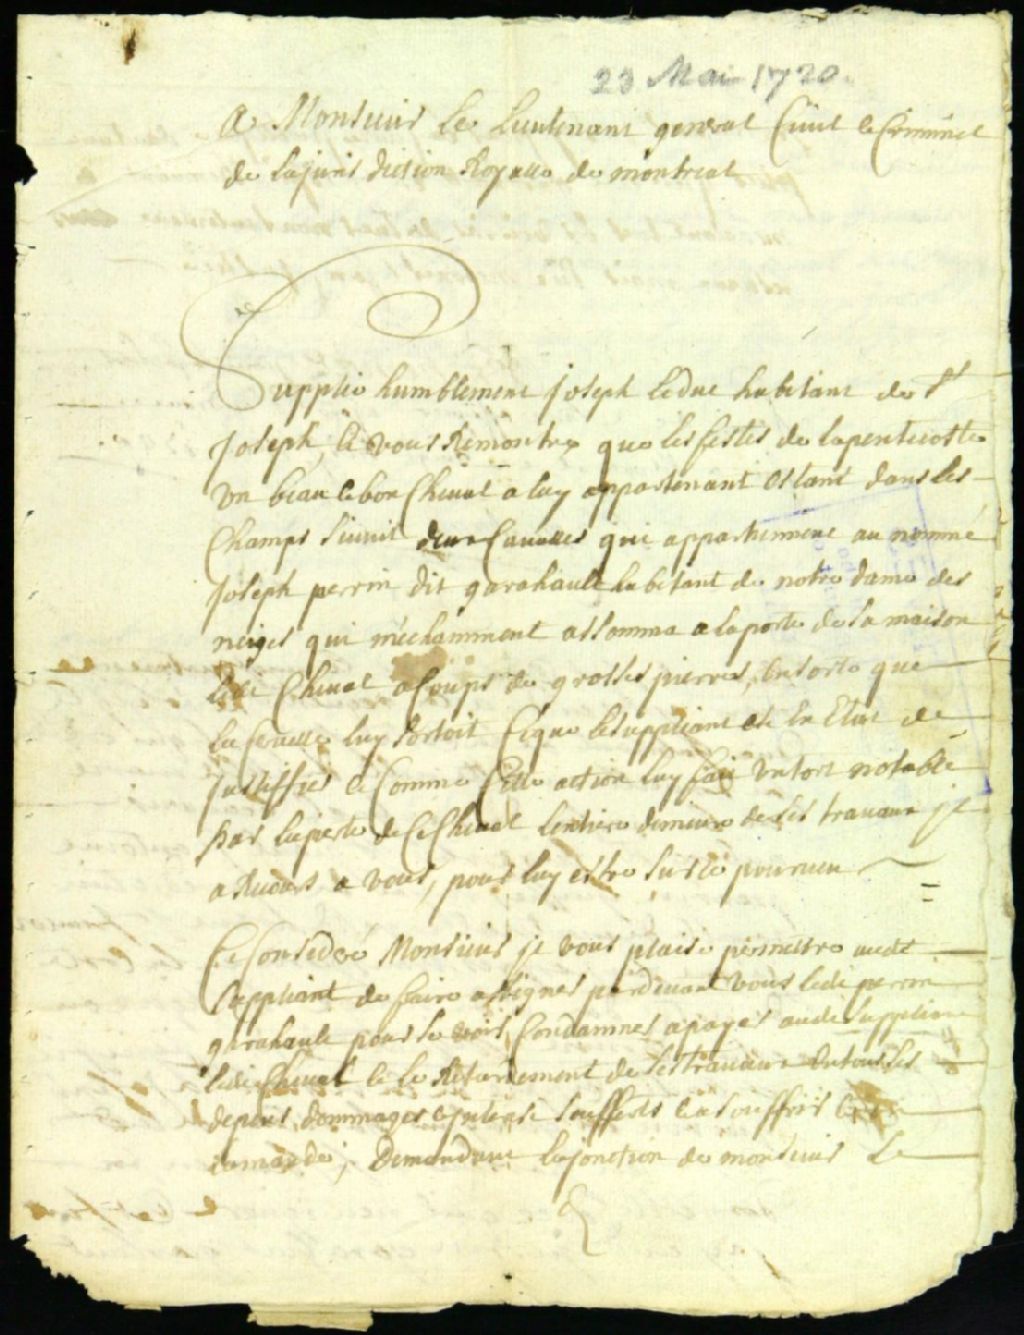 23 Mai 1720.
A Monsieur Le Lieutenant general Civil et Criminel
de la jurisdiction Royalle de montreal
Supplie humblement joseph leduc habitant de St
joseph, et vous Remontre que les festes de la pentecoste
un beau et bon Cheval a luy appartenant estant dans les
Champs suivit deux Cavalles qui appartiennent au nommé
joseph perrin dit garahault habitant de notre dame des
neiges qui mechamment assomma a la porte de sa maison
ledit Cheval a Coups de grosses pierres, ensorte que
la cervelle luy sortoit Ce que le suppliant est en Etat de
justiffier et Comme Cette action luy fait un tort notable
par la perte de Ce Cheval de ses travaux
a vous, pour luy estre sur ce pourveu
Ce Consideré Monsieur il vous plaise permettre audit
suppliant de faire assigner pardevant vous ledit perrin
garahault pour se voir Condamner a payer audit suppliant
ledit Cheval et le Retardement de ses travaux
depens, dommages et soufferts et a souffrir
lamande, Demandant la jonction de monsieur Le